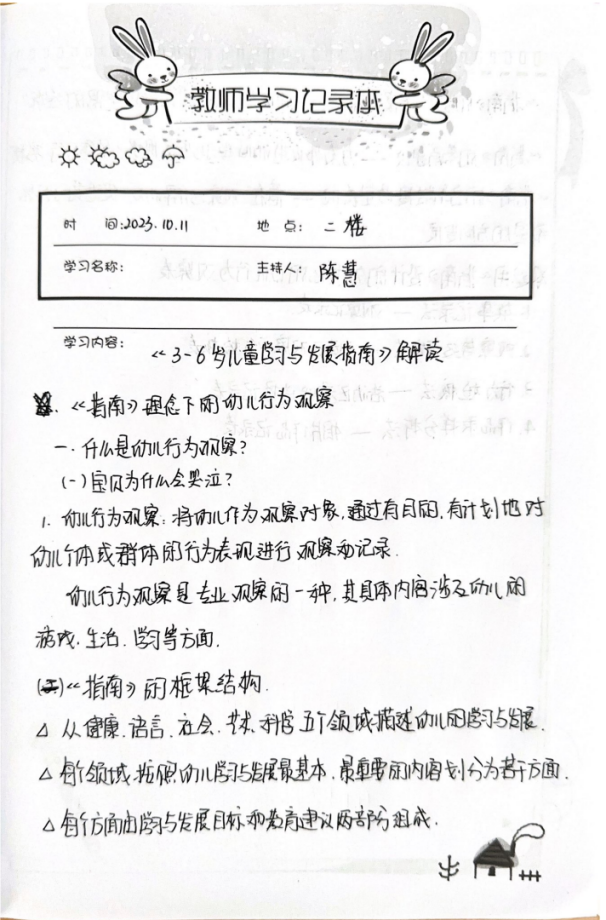 教师学习记录座
时 间:2023.10.11 地 点: 二楼
学习名称: 主持人: 陈慧
学习内容:
《3-6岁儿童学习与发展指南》解读
《指南》理念下的幼儿行为观察
一.什么是幼儿行为观察?
(一)宝贝为什么会哭泣?
1. 幼儿行为观察:将幼儿作为观察对象,通过有目的,有计划地对
幼儿个体或群体的行为表现进行观察和记录.
幼儿行为观察是专业观察的一种,其具体内容涉及幼儿的
游戏.生活.学习等方面.
(二)《指南》的框架结构.
△ 从健康.语言.社会.艺术.科学五个领域描述幼儿的学习与发展.
△ 每个领域按照幼儿学习与发展最基本.最重要的内容划分为若干方面.
△ 每个方面由学习与发展目标和教育建议两部分组成.